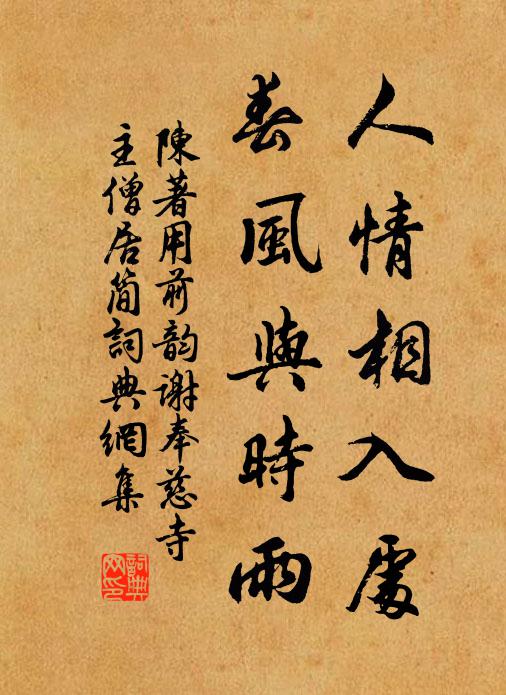 人情相入處
春風與時雨
陳著用前韵謝奉慈寺
主僧居簡詞典網集
詞典
网印